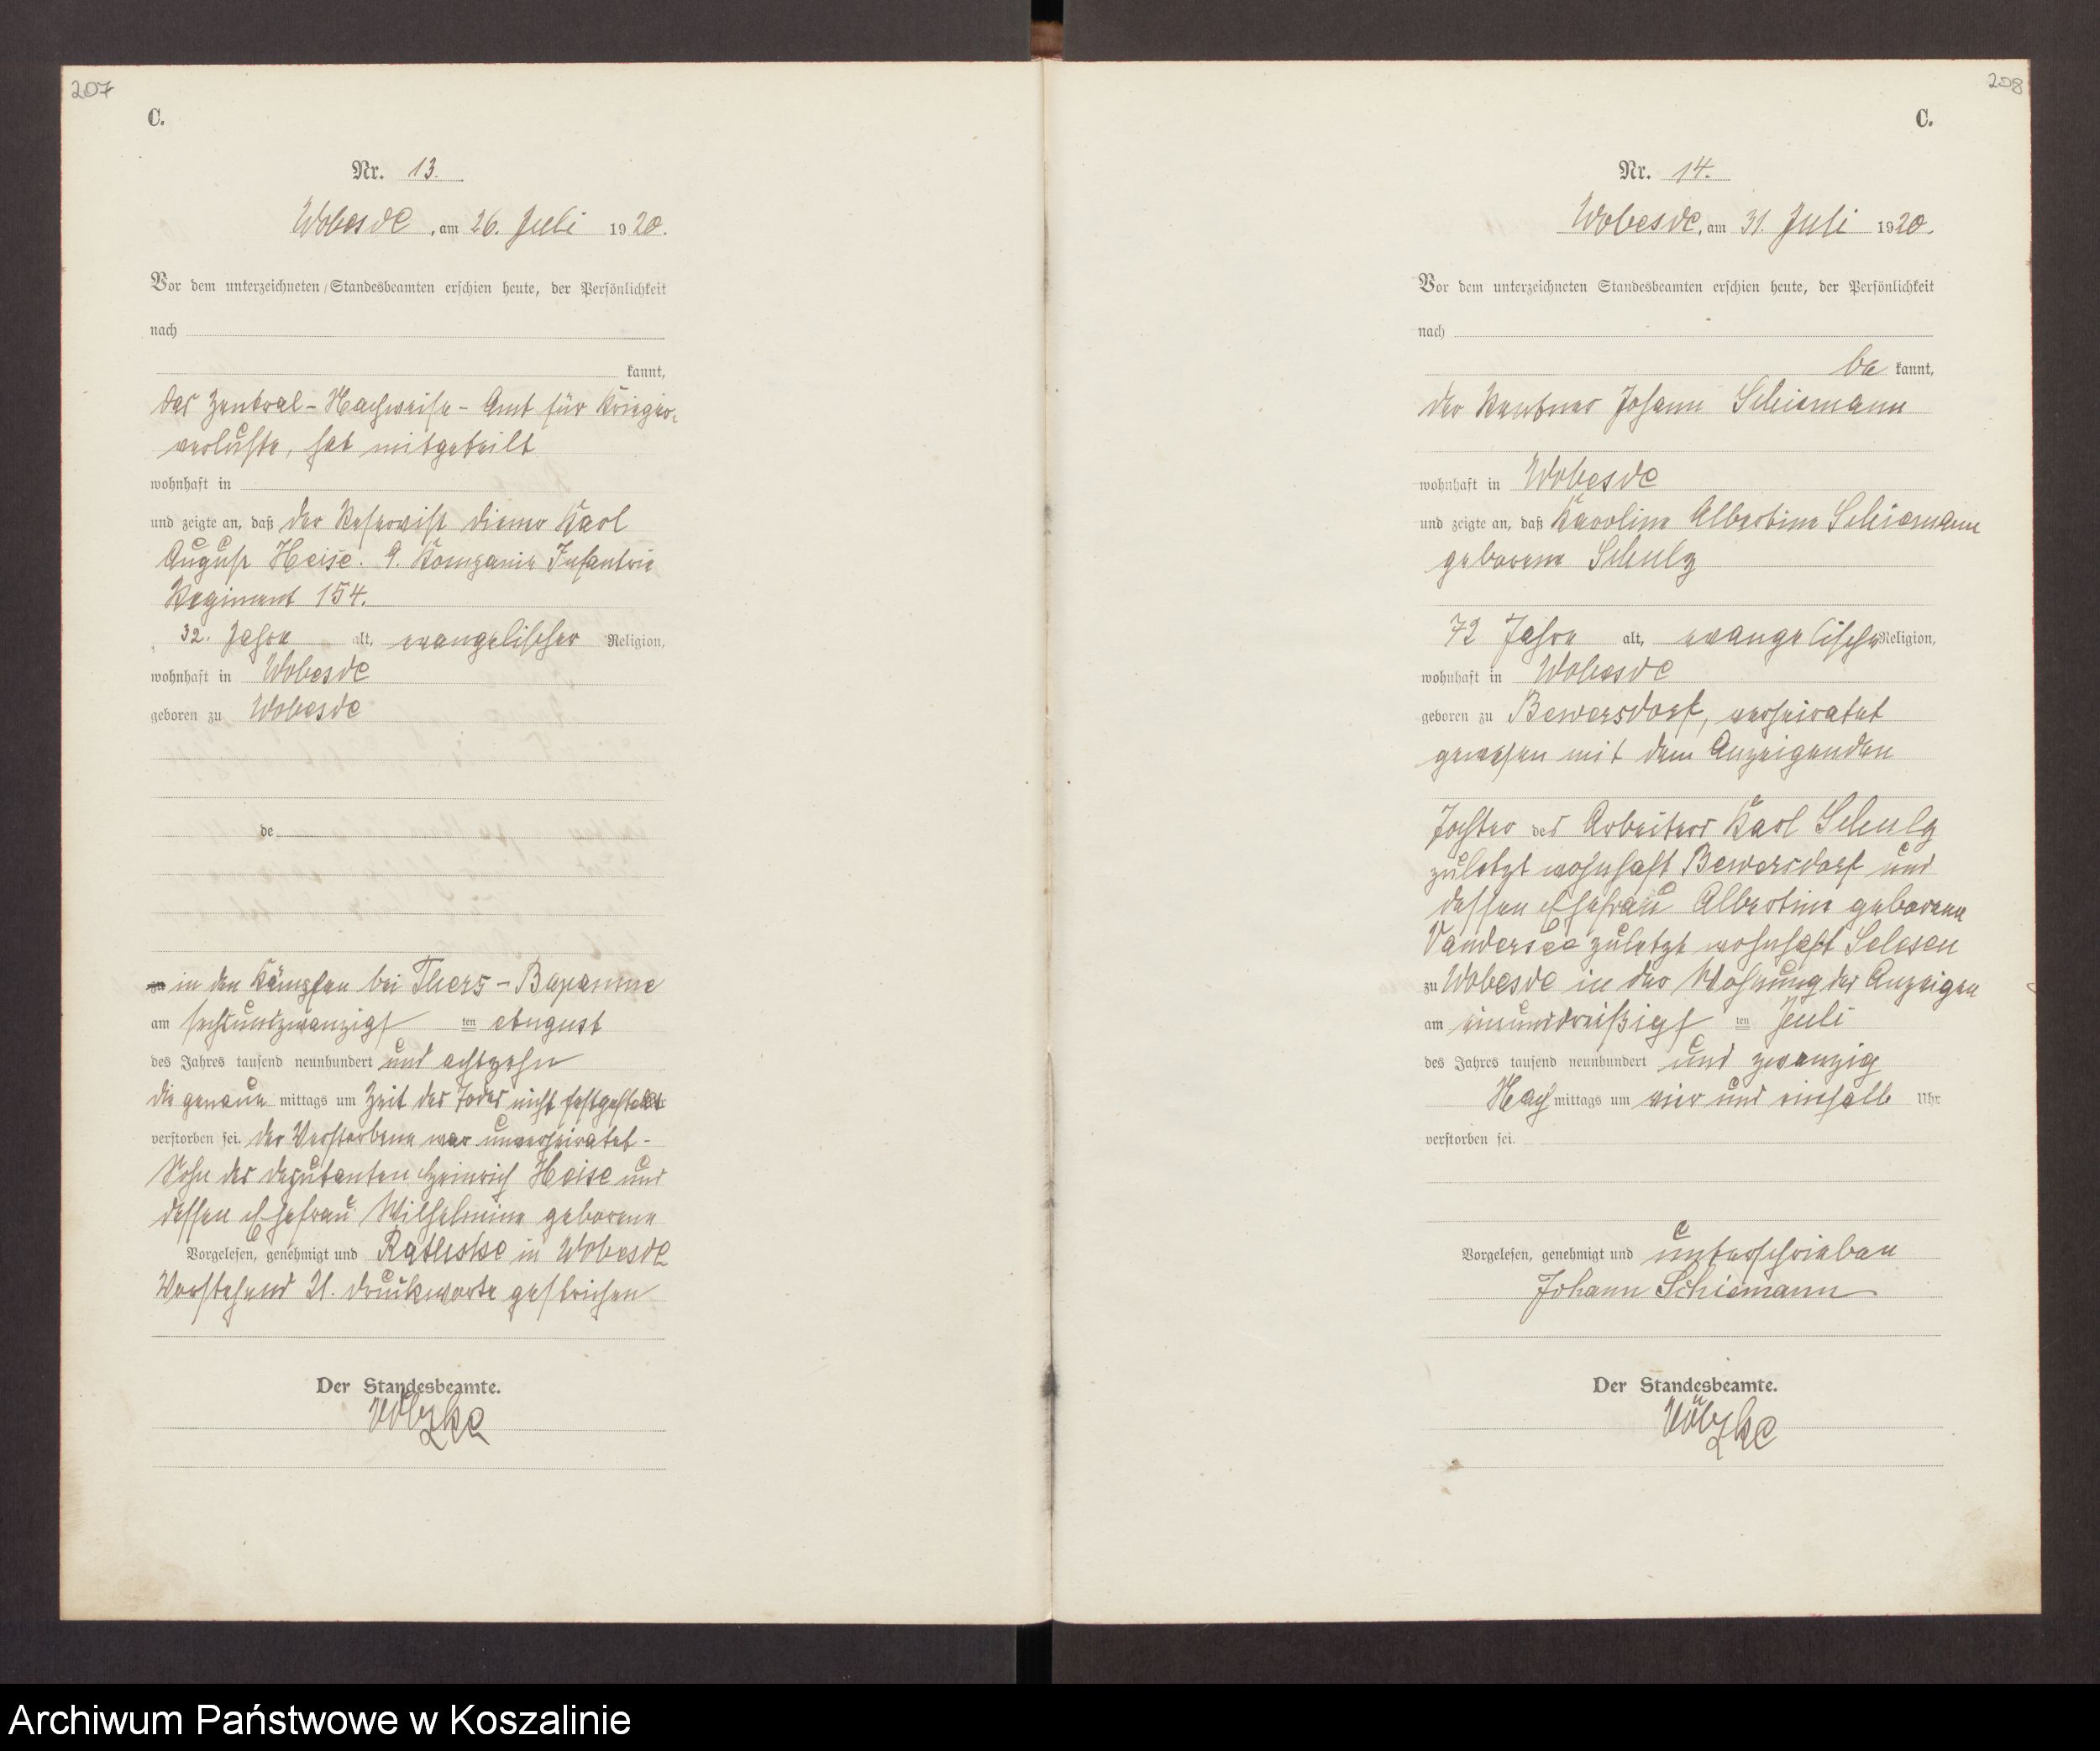 207
C.
Nr. 13.
Wobesde, am 26. Juli 1920.
Vor dem unterzeichneten Standesbeamten erschien heute, der Persönlichkeit
nach
kannt,
das Zentral-Nachweise-Amt für Krieger-
verluste, hat mitgeteilt
wohnhaft in
und zeigte an, daß der Reservist Karl
August Heise. 9. Kompanie Infantrie
Regiment 154.
32. Jahre alt, evangelischer Religion,
wohnhaft in Wobesde
geboren zu Wobesde
de
zu in den Kämpfen bei Bapaume
am sechsundzwanzigsten August
des Jahres tausend neunhundert und achtzehn
die genaue mittags um Zeit des Todes nicht festgestellt
verstorben sei. der Verstorbene war unverheiratet-
Sohn des Deputanten Heinrich Heise und
dessen Ehefrau Wilhelmine geborene
Vorgelesen, genehmigt und in Wobesde
Vorstehend 21. Druckworte gestrichen
Der Standesbeamte.
Völzke
208
C.
Nr. 14.
Wobesde, am 31. Juli 1920.
Vor dem unterzeichneten Standesbeamten erschien heute, der Persönlichkeit
nach
be kannt,
der Rentner Johann Schiemann
wohnhaft in Wobesde
und zeigte an, daß Karoline Albertine Schiemann
geborene Schulz
72 Jahre alt, evangelischer Religion,
wohnhaft in Wobesde
geboren zu Bewersdorf, verheiratet
gewesen mit dem Anzeigenden
Tochter des Arbeiters Karl Schulz
zuletzt wohnhaft Bewersdorf und
dessen Ehefrau Albertine geborene
Vandersee zuletzt wohnhaft Selesen
zu Wobesde in der Wohnung des Anzeigen
am einunddreißigsten Juli
des Jahres tausend neunhundert und zwanzig
Nach mittags um vier und einhalb Uhr
verstorben sei.
Vorgelesen, genehmigt und unterschrieben
Johann Schiemann
Der Standesbeamte.
Völzke
Archiwum Państwowe w Koszalinie